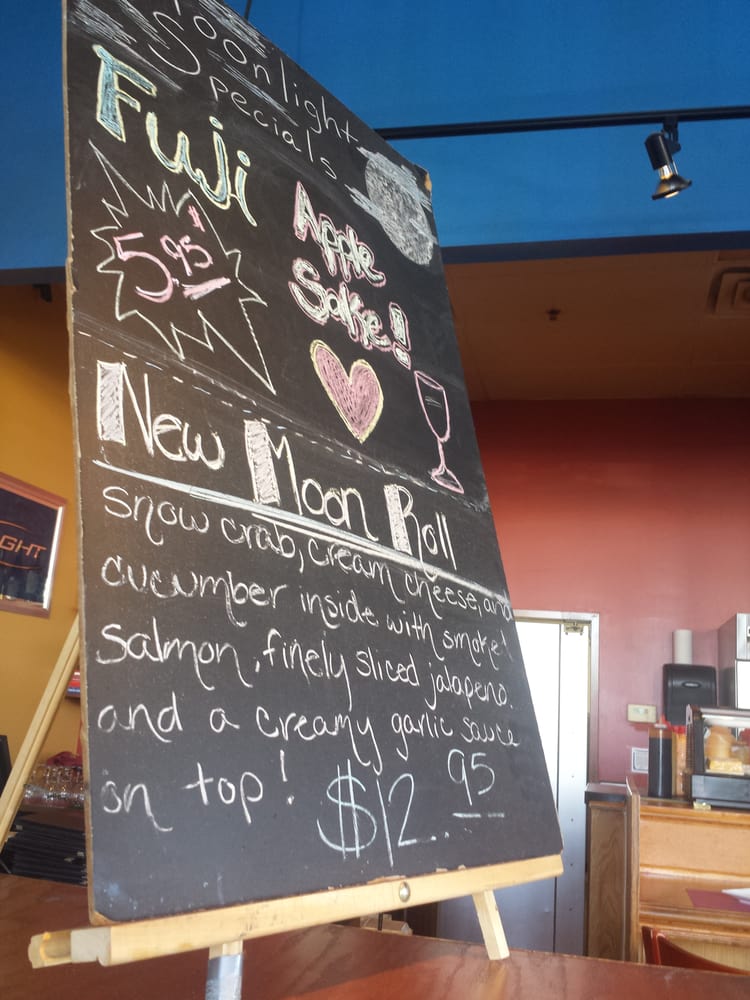 Soonlight
Specials
Fuji
5.95
Apple
Sake!
New Moon Roll
snow crab, cream cheese, and
cucumber inside with smoked
salmon, finely sliced jalapeno.
and a creamy garlic sauce
on top! $12.95
GHT